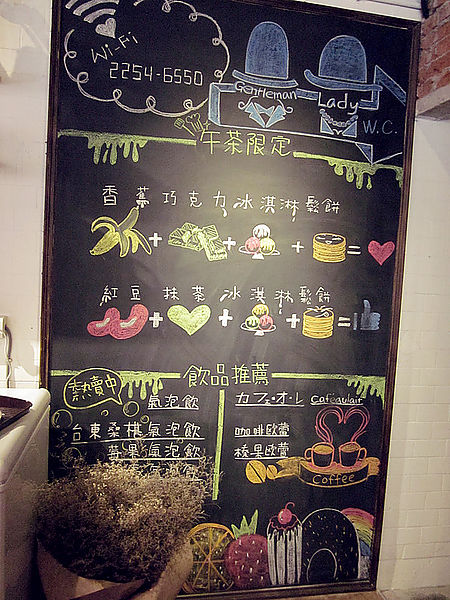 Wi-Fi
2254-6550
Gentleman
Lady
W.C.
午茶限定
香蕉巧克力冰淇淋鬆餅
+ + + =
紅豆抹茶冰淇淋鬆餅
+ + + =
飲品推薦
熱賣中
氣泡飲
台東桑椹氣泡飲
莓果氣泡飲
カフェ・オ・レ caféaulait
咖啡歐蕾
榛果歐蕾
Coffee